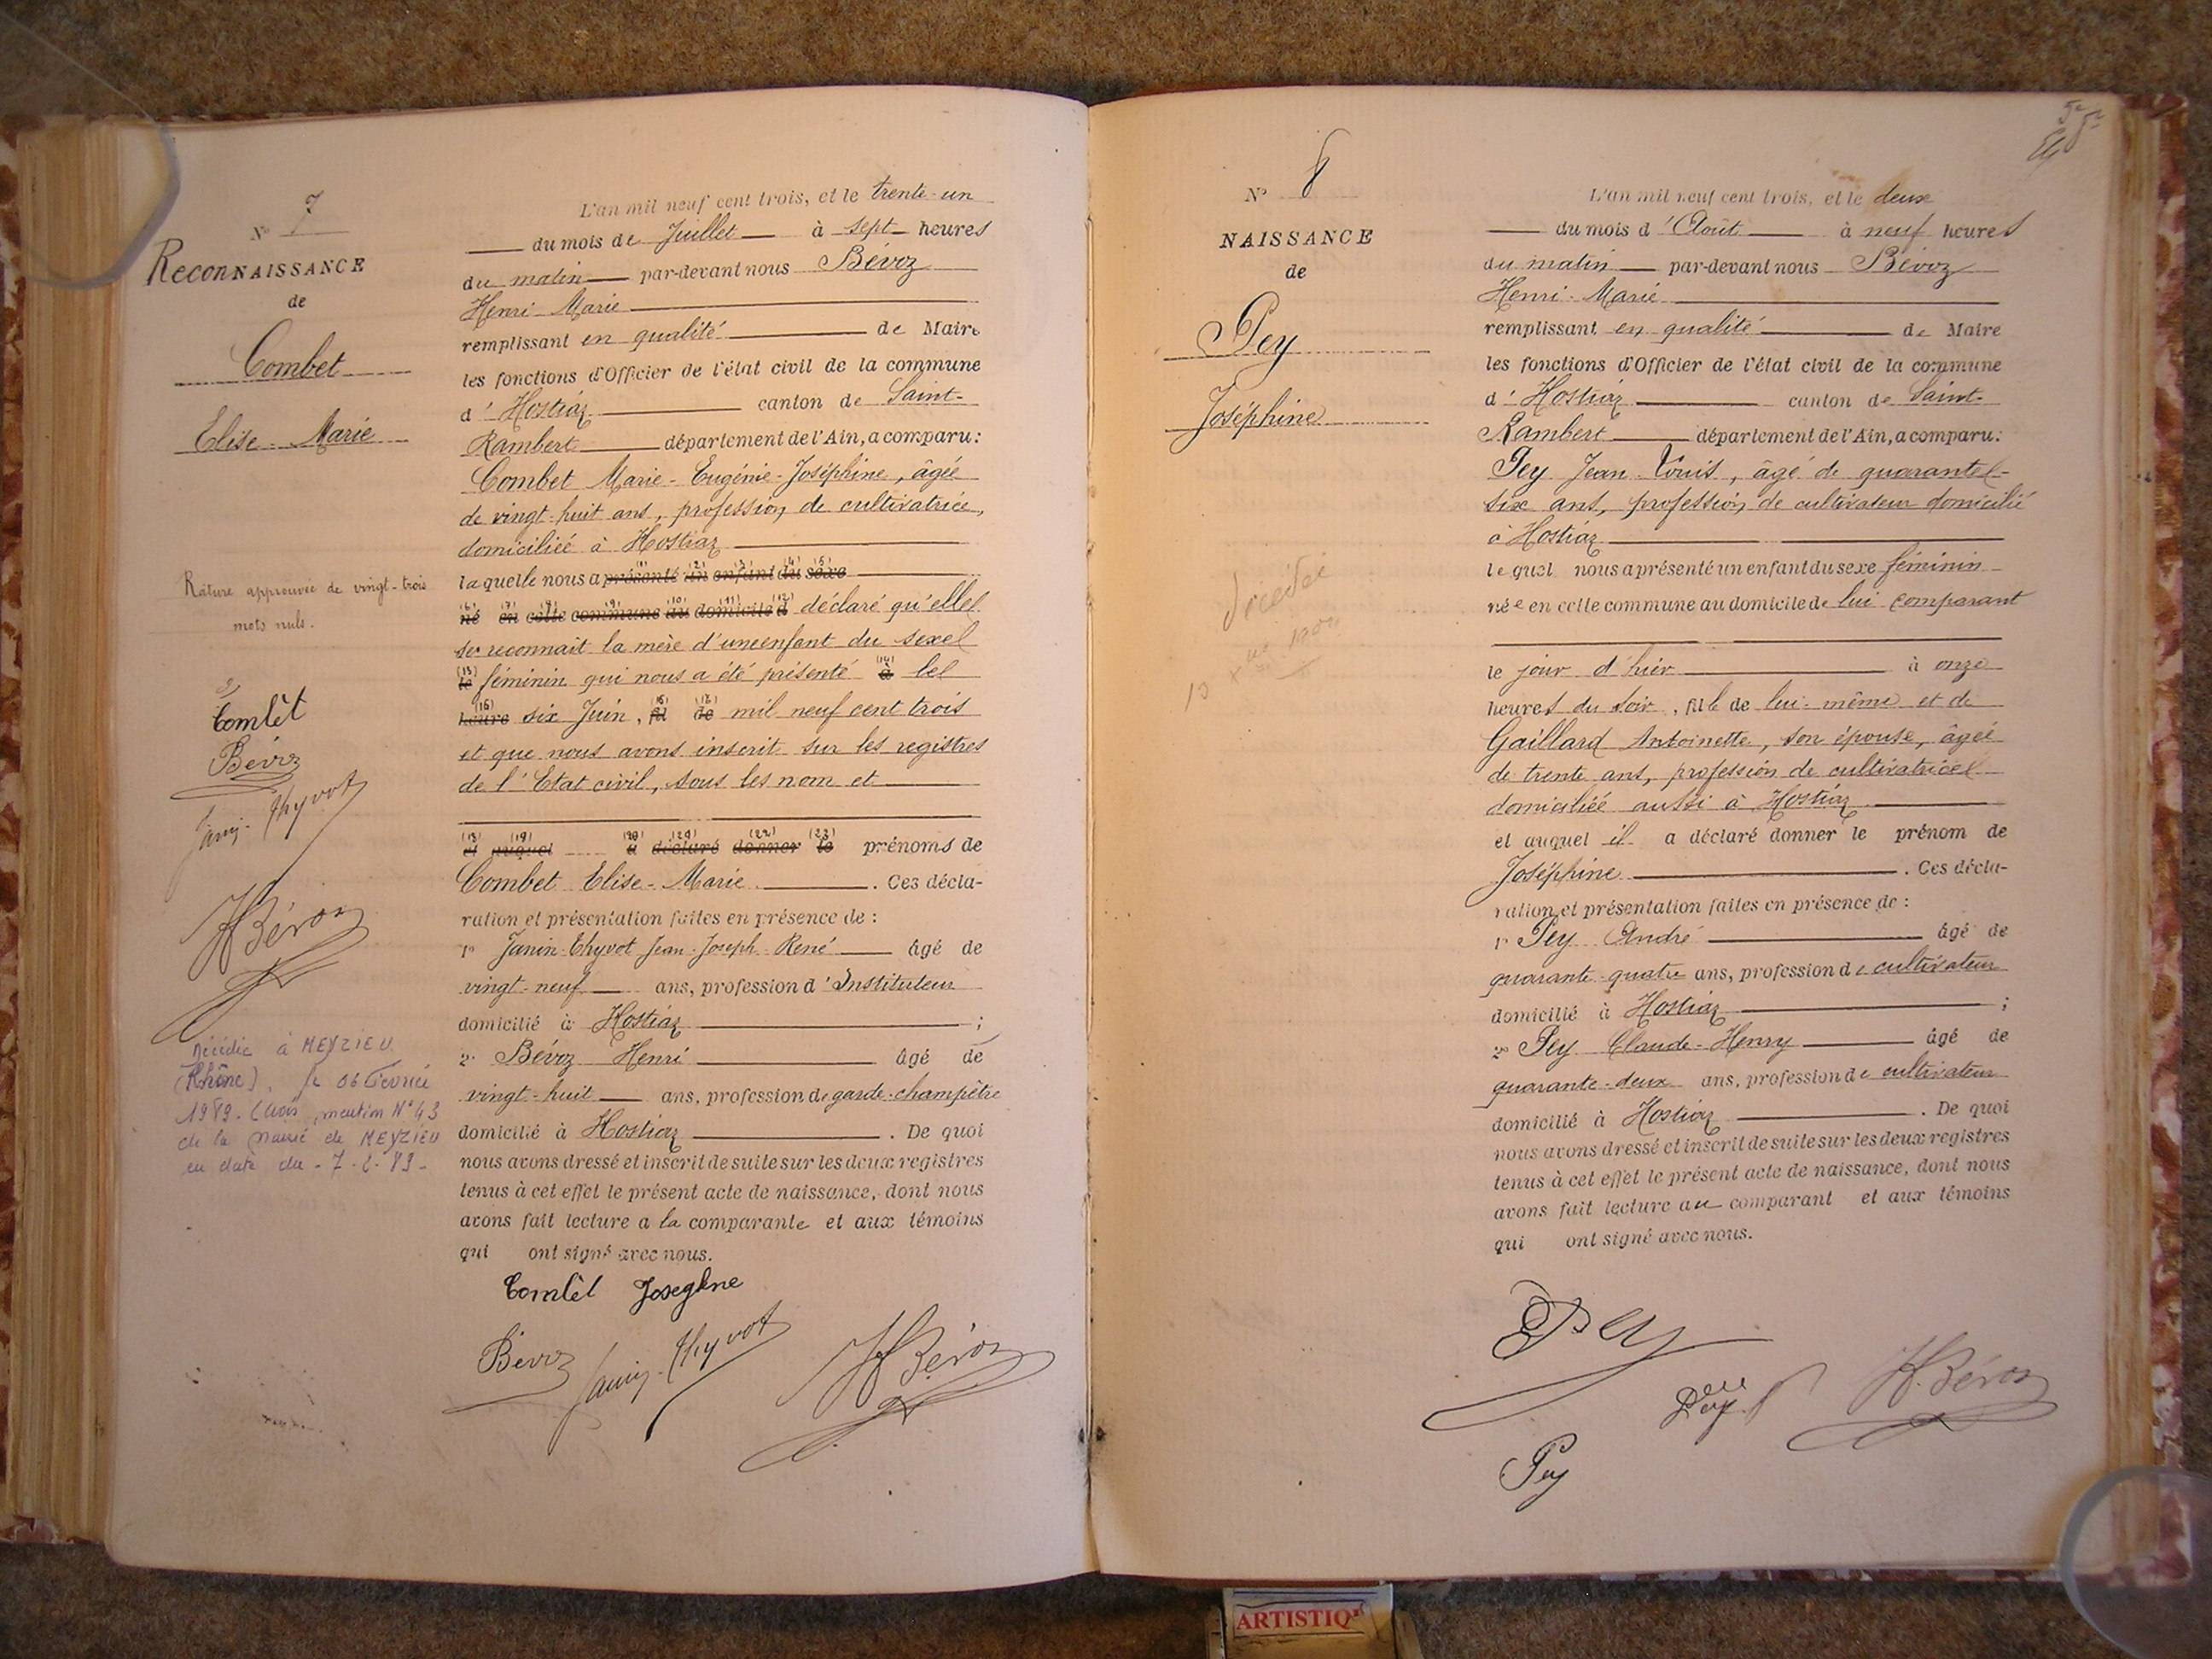 N° 7
ReconNAISSANCE
de
Combet
Elise-Marie
Rature approuvée de vingt-trois
mots nuls.
Combet
Bévoz
Janin-Thyvot
HBévoz
Décédée à MEYZIEU
(Rhône), le 06 Février
1989. (Avis mention N° 43
de la Mairie de MEYZIEU
en date du - 7.2.89 -
L'an mil neuf cent trois, et le trente-un
du mois de Juillet à sept heures
du matin par-devant nous Bévoz
Henri-Marie
remplissant en qualité de Maire
les fonctions d'Officier de l'état civil de la commune
d'Hostiaz canton de Saint-
Rambert département de l'Ain, a comparu:
Combet Marie-Eugénie-Joséphine, âgée
de vingt-huit ans, profession de cultivatrice,
domiciliée à Hostiaz
laquelle nous a présenté (1) un (2) enfant (3) du (4) sexe (5)
né (6) en (7) cette (8) commune (9) au (10) domicile (11) d (12) déclaré qu'elle
se reconnait la mère d'un enfant du sexe
le (13) féminin qui nous a été présenté à (14) le
heure (15) six Juin, fil (16) de (17) mil neuf cent trois
et que nous avons inscrit sur les registres
de l'Etat civil, sous les nom et
et (18) auquel (19) a (20) déclaré (21) donner (22) le (23) prénoms de
Combet Elise-Marie. Ces décla-
ration et présentation faites en présence de :
1° Janin-Thyvot Jean-Joseph-René âgé de
vingt-neuf ans, profession d'Instituteur
domicilié à Hostiaz ;
2° Bévoz Henri âgé de
vingt-huit ans, profession de garde-champêtre
domicilié à Hostiaz. De quoi
nous avons dressé et inscrit de suite sur les deux registres
tenus à cet effet le présent acte de naissance, dont nous
avons fait lecture a la comparante et aux témoins
qui ont signé avec nous.
Combet Josephne
Bévoz Janin-Thyvot HBévoz
N° 8
NAISSANCE
de
Pey
Joséphine
décédée
13
L'an mil neuf cent trois, et le deux
du mois d'Août à neuf heures
du matin par-devant nous Bévoz
Henri-Marie
remplissant en qualité de Maire
les fonctions d'Officier de l'état civil de la commune
d'Hostiaz canton de Saint-
Rambert département de l'Ain, a comparu:
Pey Jean-Louis, âgé de quarante-
six ans, profession de cultivateur domicilié
à Hostiaz
lequel nous a présenté un enfant du sexe féminin
née en cette commune au domicile de lui comparant
le jour d'hier à onze
heures du soir, fille de lui-même et de
Gaillard Antoinette, son épouse, âgée
de trente ans, profession de cultivatrice
domiciliée aussi à Hostiaz
et auquel il a déclaré donner le prénom de
Joséphine. Ces décla-
ration et présentation faites en présence de :
1° Pey André âgé de
quarante-quatre ans, profession de cultivateur
domicilié à Hostiaz ;
2° Pey Claude-Henry âgé de
quarante-deux ans, profession de cultivateur
domicilié à Hostiaz. De quoi
nous avons dressé et inscrit de suite sur les deux registres
tenus à cet effet le présent acte de naissance, dont nous
avons fait lecture au comparant et aux témoins
qui ont signé avec nous.
Pey
Pey H.Bévoz
Pey
ARTISTIQ